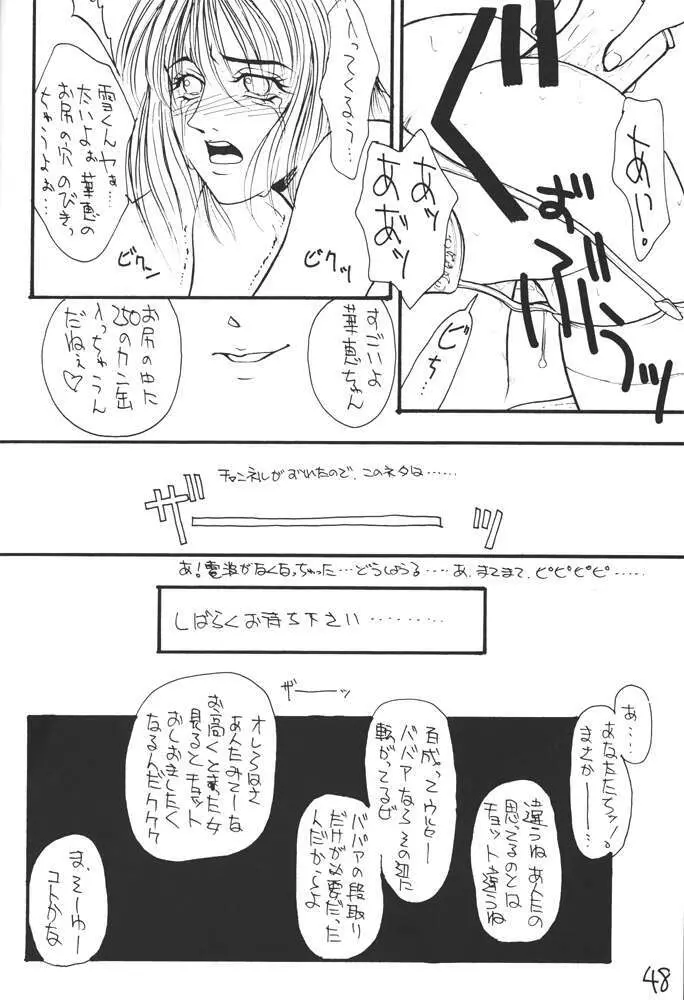 あっ。
ず゛ん
ずンッ
ビち…
あッ
あぁッ
入ってくるう…
雪くんヤぁ…
たいよぉ 華恵の
お尻の穴 のびきっ
ちゃうよぉ…
ビクッ
ビクン
すごいよ
華恵ちゃん
お尻の中に
250のカン缶
入っちゃうん
だねぇ♡
チャンネルがずれたので、このネタは……
ザ――ッ
あ!電波がなくなっちゃった…どうしようる…あ、まてまて、ピピピピ……
しばらくお待ち下さい………
ザーーッ
あ…
あなたたちッ!
まさかーー…
違うね あんたの
思ってるのとは
チョット違うね
ババアなら その辺に
転がってるぜ
ババアの段取り
だけが必要だった
んだからよ
オレらはさ
あんたみてーな
お高くとまった女
見ると チョット
おしおきしたく
なるんだククク
ま、そーゆー
コトかな
48